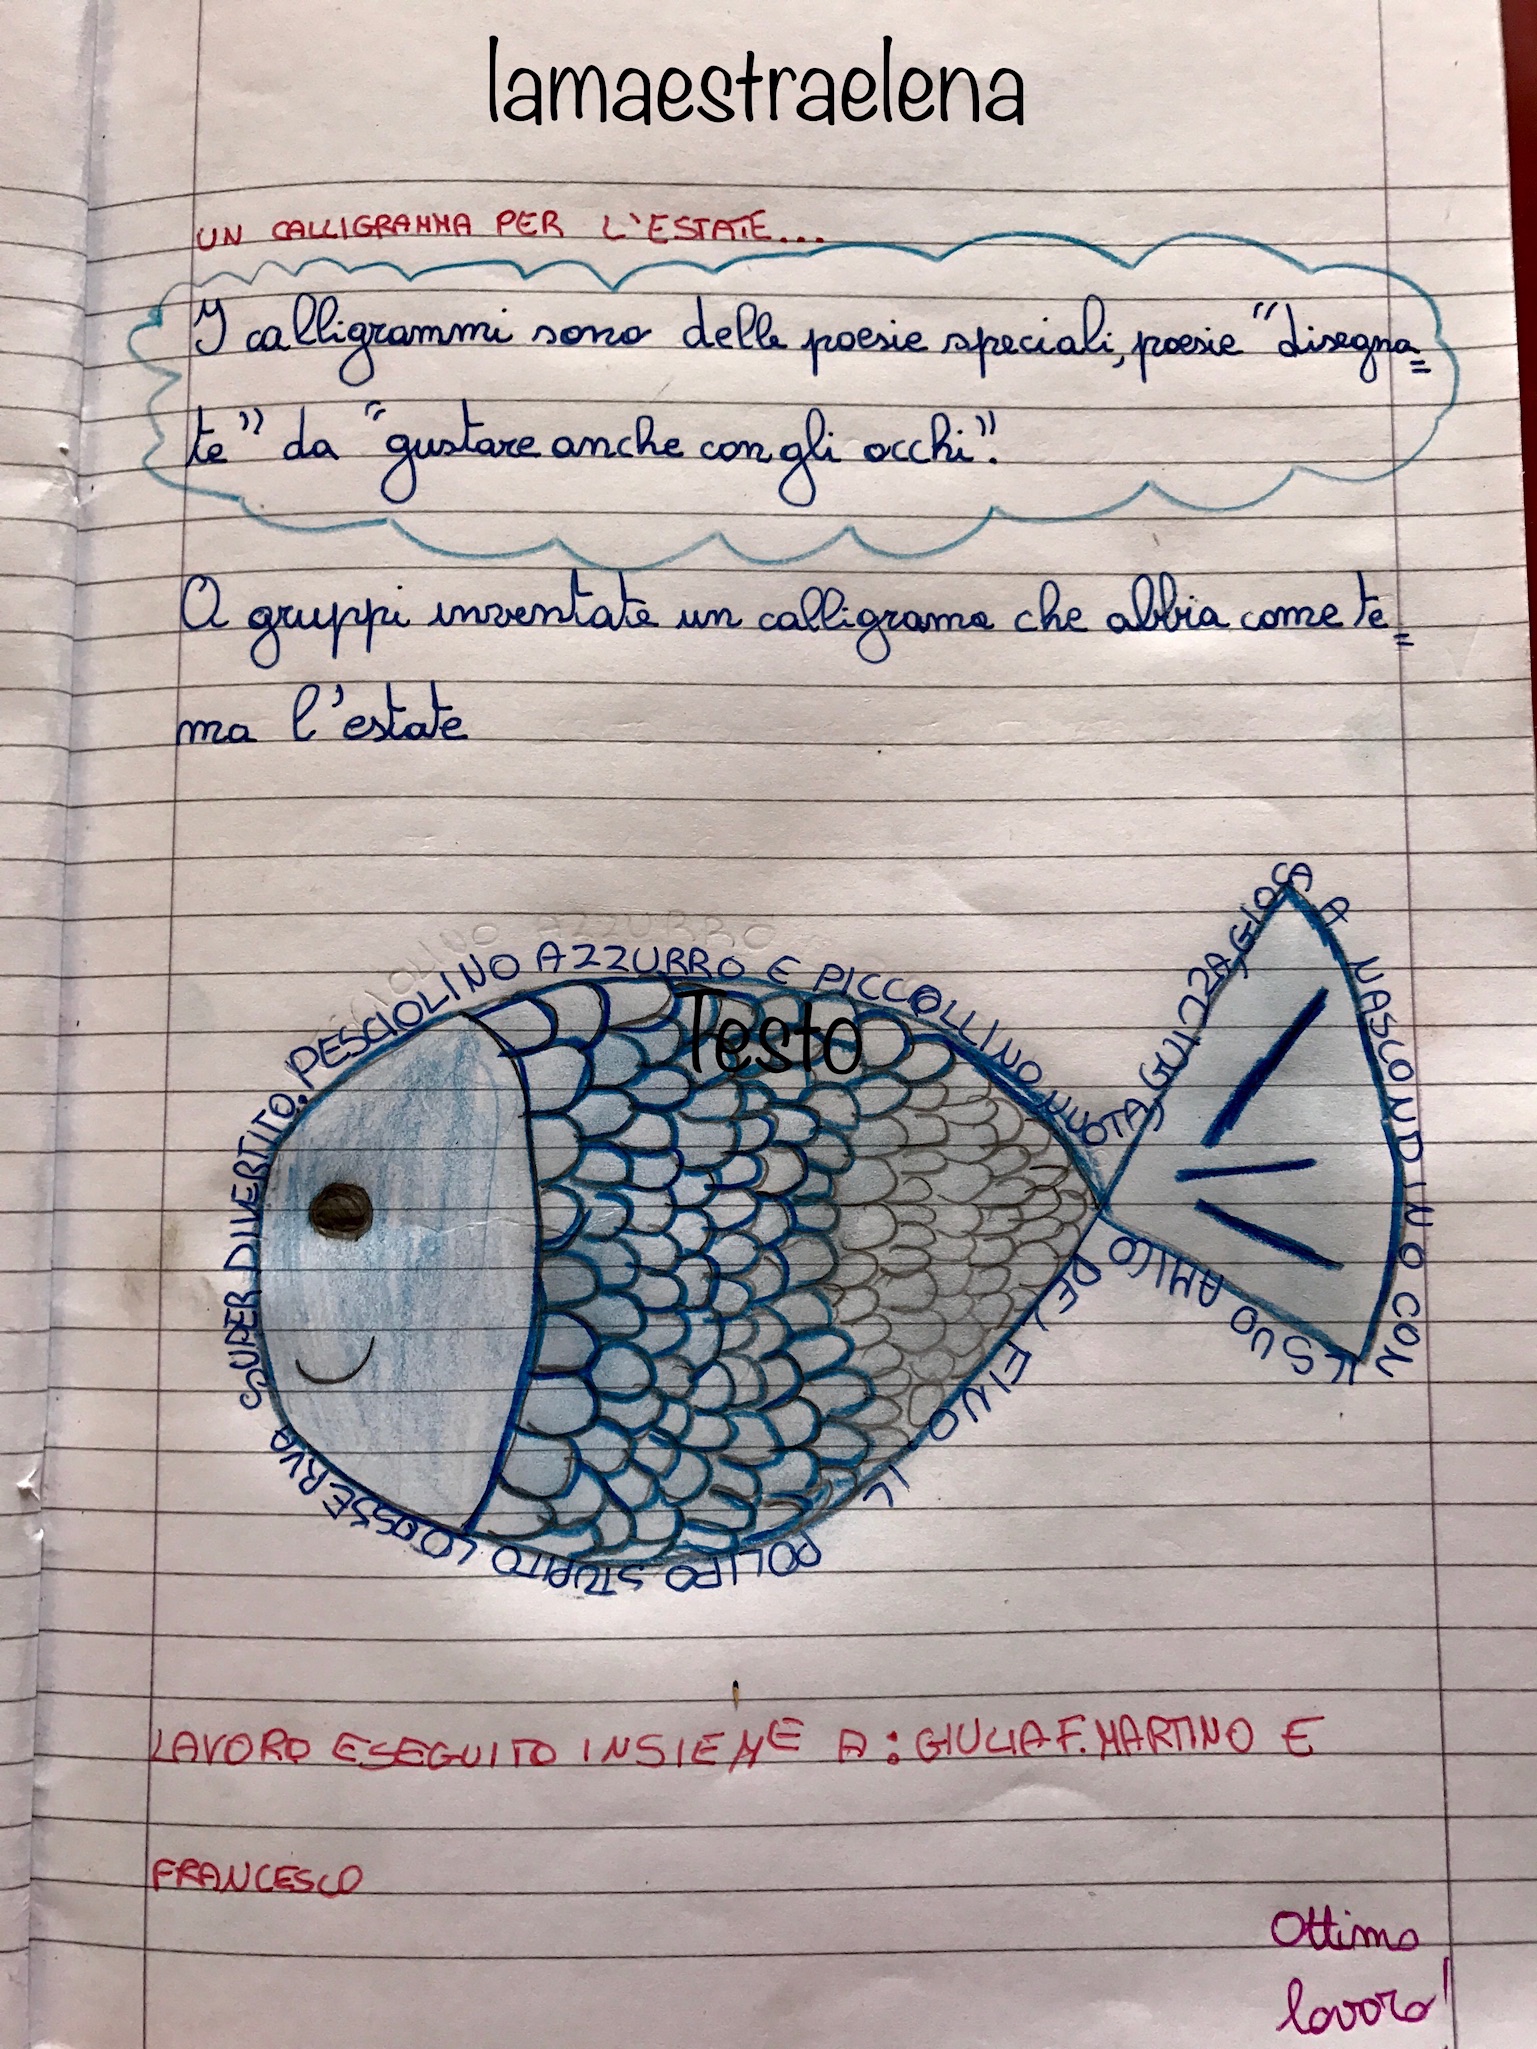 lamaestraelena
UN CALLIGRAMMA PER L'ESTATE...
I calligrammi sono delle poesie speciali, poesie "disegna=
te" da "gustare anche con gli occhi".
A gruppi inventate un calligrama che abbia come te=
ma l'estate
PESCIOLINO AZZURRO E PICCOLLINO NUOTA, GUIZZA, GIOCA A NASCONDINO CON IL SUO AMICO DELFINO. IL POLIPO STUPITO LO OSSERVA SUPER DIVERTITO.
Testo
LAVORO ESEGUITO INSIEME A: GIULIA F. MARTINO E
FRANCESCO
Ottimo
lavoro!